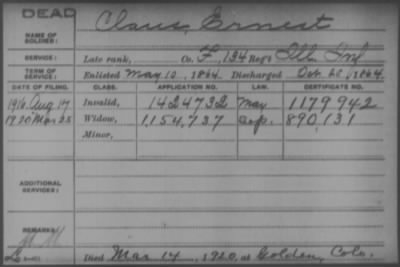 DEAD
NAME OF SOLDIER: Claus, Ernest
SERVICE: Late rank, Co. F, 134 Reg't Ill. Inf
TERM OF SERVICE: Enlisted May 10, 1864. Discharged Oct. 25, 1864
DATE OF FILING. CLASS. APPLICATION NO. LAW. CERTIFICATE NO.
1916 Aug 17 Invalid, 1424732 May 1179942
1920 Mar 25 Widow, 1,154,737 890,131
Minor,
ADDITIONAL SERVICES:
REMARKS:
Died Mar 14, 1920, at Golden, Colo.